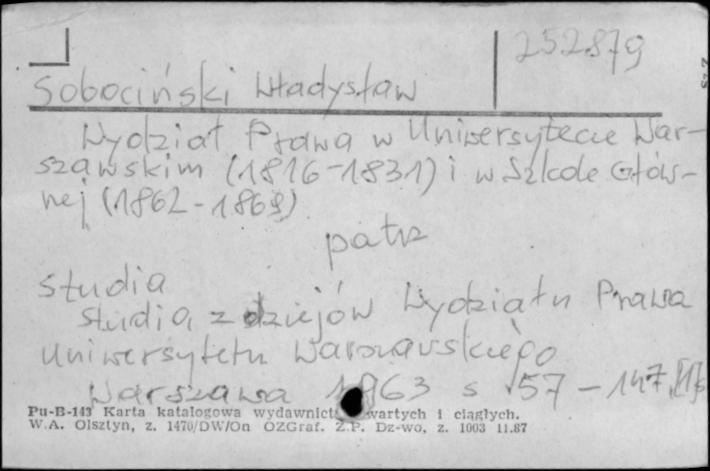 252879
Sobociński Władysław
Wydział Prawa w Uniwersytecie War-
szawskim (1816-1831) i w Szkole Głów-
nej (1862-1869)
patrz
Studia
Studia z dziejów Wydziału Prawa
Uniwersytetu Warszawskiego
Warszawa 1963 s 57-147,
Pu-B-143 Karta katalogowa wydawnict wartych i ciągłych.
W.A. Olsztyn, z. 1470/DW/On OZGraf. Z.P. Dz-wo, z. 1003 11.87